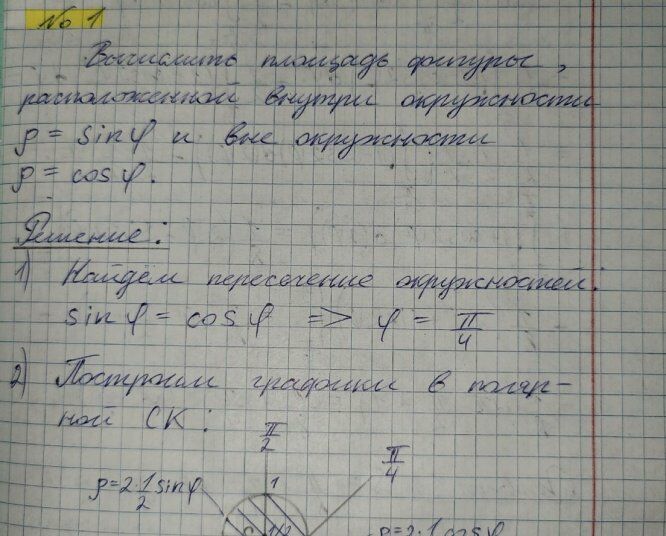 № 1
Вычислить площадь фигуры,
расположенной внутри окружности
ρ = sin φ и вне окружности
ρ = cos φ.
Решение:
1) Найдем пересечение окружностей:
sin φ = cos φ => φ = π/4
2) Построим графики в поляр-
ной СК:
π/2
π/4
ρ=2·1/2 sin φ
1
1/2
ρ=2·1 cos φ